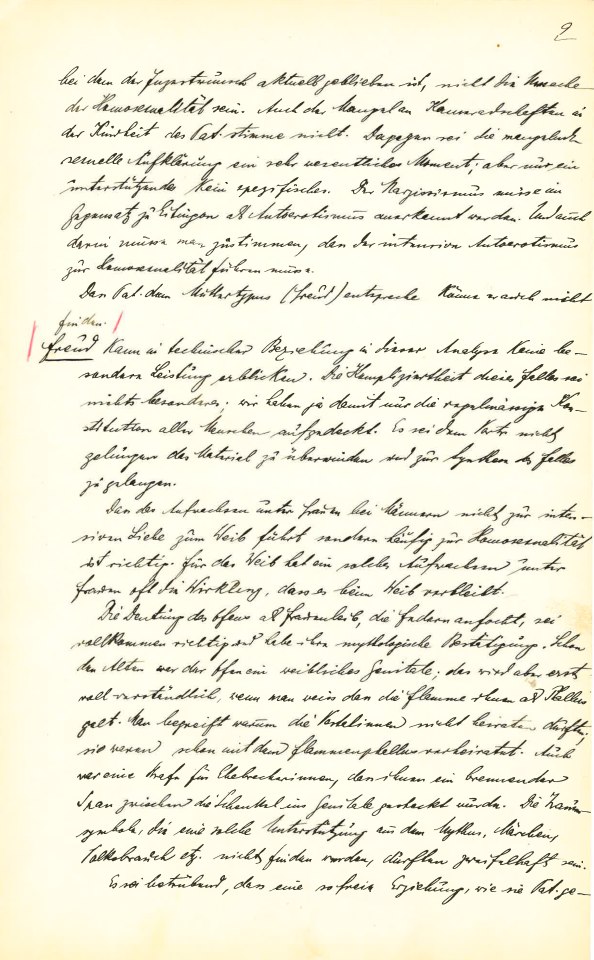 9
bei dem der Inzestwunsch aktuell geblieben ist, nicht die Ursache
der Homosexualität sein. Auch der Mangel an Kameradschaften in
der Kindheit des Pat. stimme nicht. Dagegen sei die mangelnde
sexuelle Aufklärung ein sehr wesentliches Moment; aber nur ein
unterstützendes kein spezifisches. Der Narzissismus müsse im
Gegensatz zu Eitingon als Autoerotismus anerkannt werden. Und auch
darin müsse man zustimmen, dass der intensive Autoerotismus
zur Homosexualität führen müsse.
Dass Pat. dem Muttertypus (Freud) entspreche könne er auch nicht
finden.
Freud kann in technischer Beziehung in dieser Analyse keine be-
sondere Leistung erblicken. Die Kompliziertheit dieses Falles sei
nichts besonderes; wir haben ja damit nur die regelmässige Kon-
stitution aller Menschen aufgedeckt. Es sei dem Vortr. nicht
gelungen das Material zu überwinden und zur Synthese des Falles
zu gelangen.
Dass das Aufwachsen unter Frauen bei Männern nicht zur inten-
siven Liebe zum Weib führt sondern häufig zur Homosexualität
ist richtig. Für das Weib hat ein solches Aufwachsen unter
Frauen oft die Wirkung, dass es beim Weib verbleibt.
Die Deutung des Ofens als Frauenleib, die Federn anfocht, sei
vollkommen richtig und habe ihre mythologische Bestätigung. Schon
den Alten war der Ofen ein weibliches Genitale; das wird aber erst
voll verständlich, wenn man weiss dass die Flamme ihnen als Phallus
galt. Man begreift warum die Vestalinnen nicht heiraten durften;
sie waren schon mit dem Flammenphallus verheiratet. Auch
war eine Strafe für Ehebrecherinnen, dass ihnen ein brennender
Span zwischen die Schenkel ins Genitale gesteckt wurde. Die Traum-
symbole, die eine solche Unterstützung aus dem Mythus, Märchen,
Volksbrauch etz. nicht finden werden, dürften zweifelhaft sein.
Es sei betrübend, dass eine so freie Erziehung, wie sie Pat. ge-